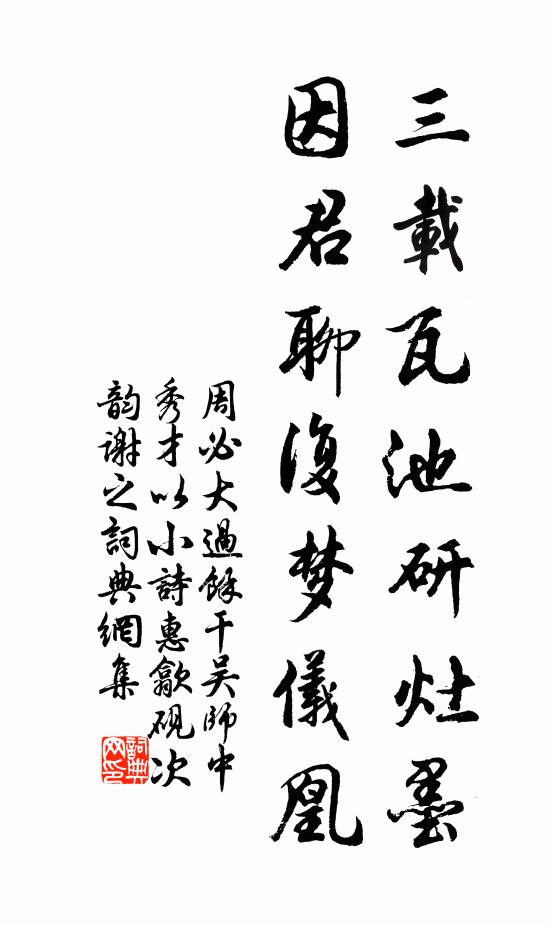 三載瓦池研灶墨
因君聊復梦儀凰
周必大過餘干吴師中
秀才以小詩惠歙硯次
韵謝之詞典網集
詞典
网印